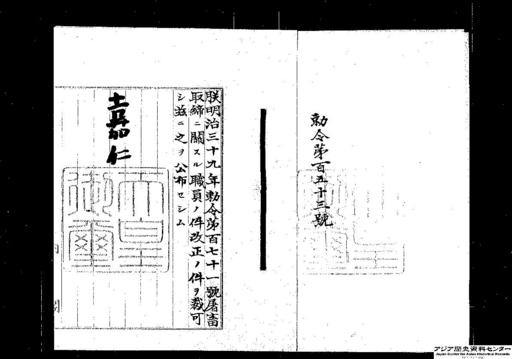 勅令第百五十三號
朕明治三十九年勅令第百七十一號屠畜
取締ニ關スル職員ノ件改正ノ件ヲ裁可
シ茲ニ之ヲ公布セシム
嘉仁
天皇
御璽
アジア歴史資料センター
Japan Center for Asian Historical Records